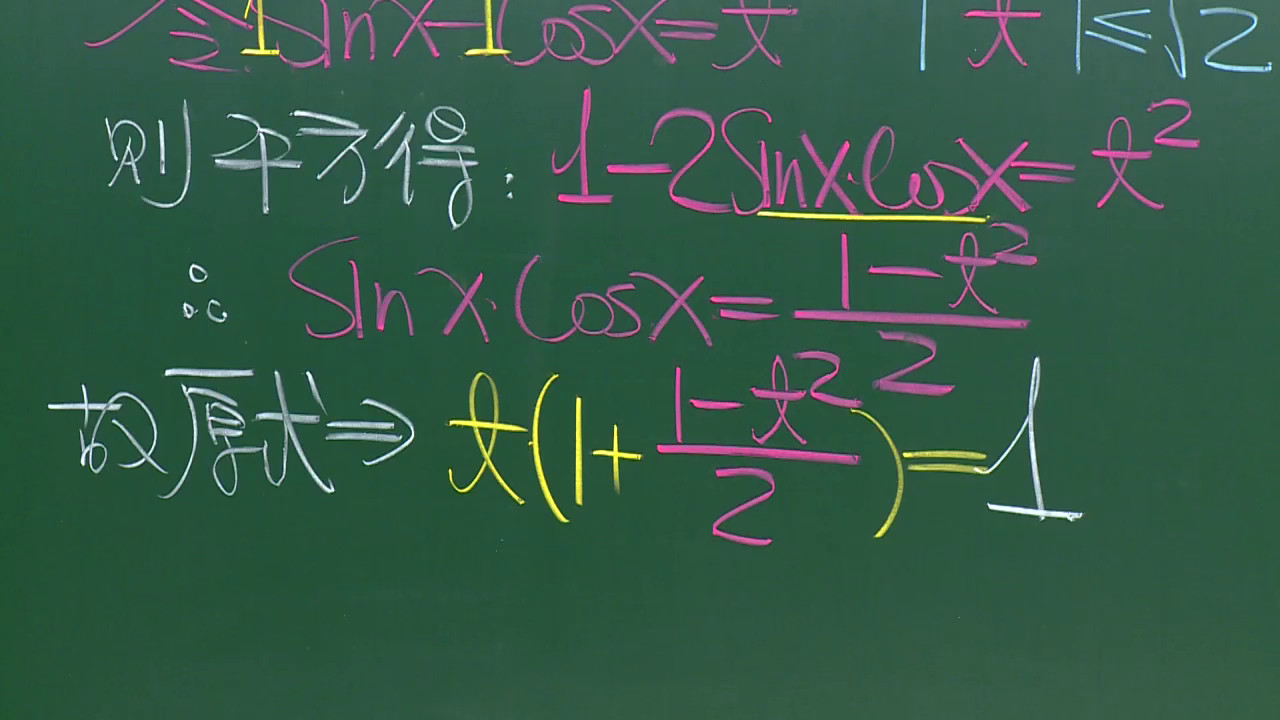 令 1 sinx - 1 cosx = t |t| ≤ √2
則平方得: 1 - 2sinx·cosx = t²
∴ sinx·cosx = (1 - t²)/2
故原式 ⇒ t(1 + (1 - t²)/2) = 1